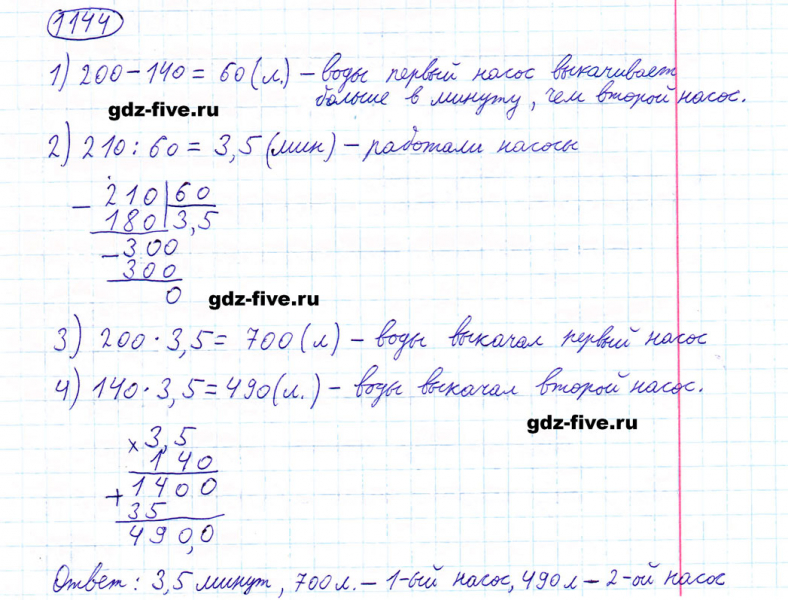 1144
1) 200 - 140 = 60 (л.) - воды первый насос выкачивает
больше в минуту, чем второй насос.
gdz-five.ru
2) 210 : 60 = 3,5 (мин) - работали насосы
- 210 | 60
180 | 3,5
- 300
300
0
gdz-five.ru
3) 200 · 3,5 = 700 (л) - воды выкачал первый насос
4) 140 · 3,5 = 490 (л.) - воды выкачал второй насос.
gdz-five.ru
× 3,5
140
+ 1400
35
490,0
Ответ: 3,5 минут, 700 л. - 1-ый насос, 490 л - 2-ой насос